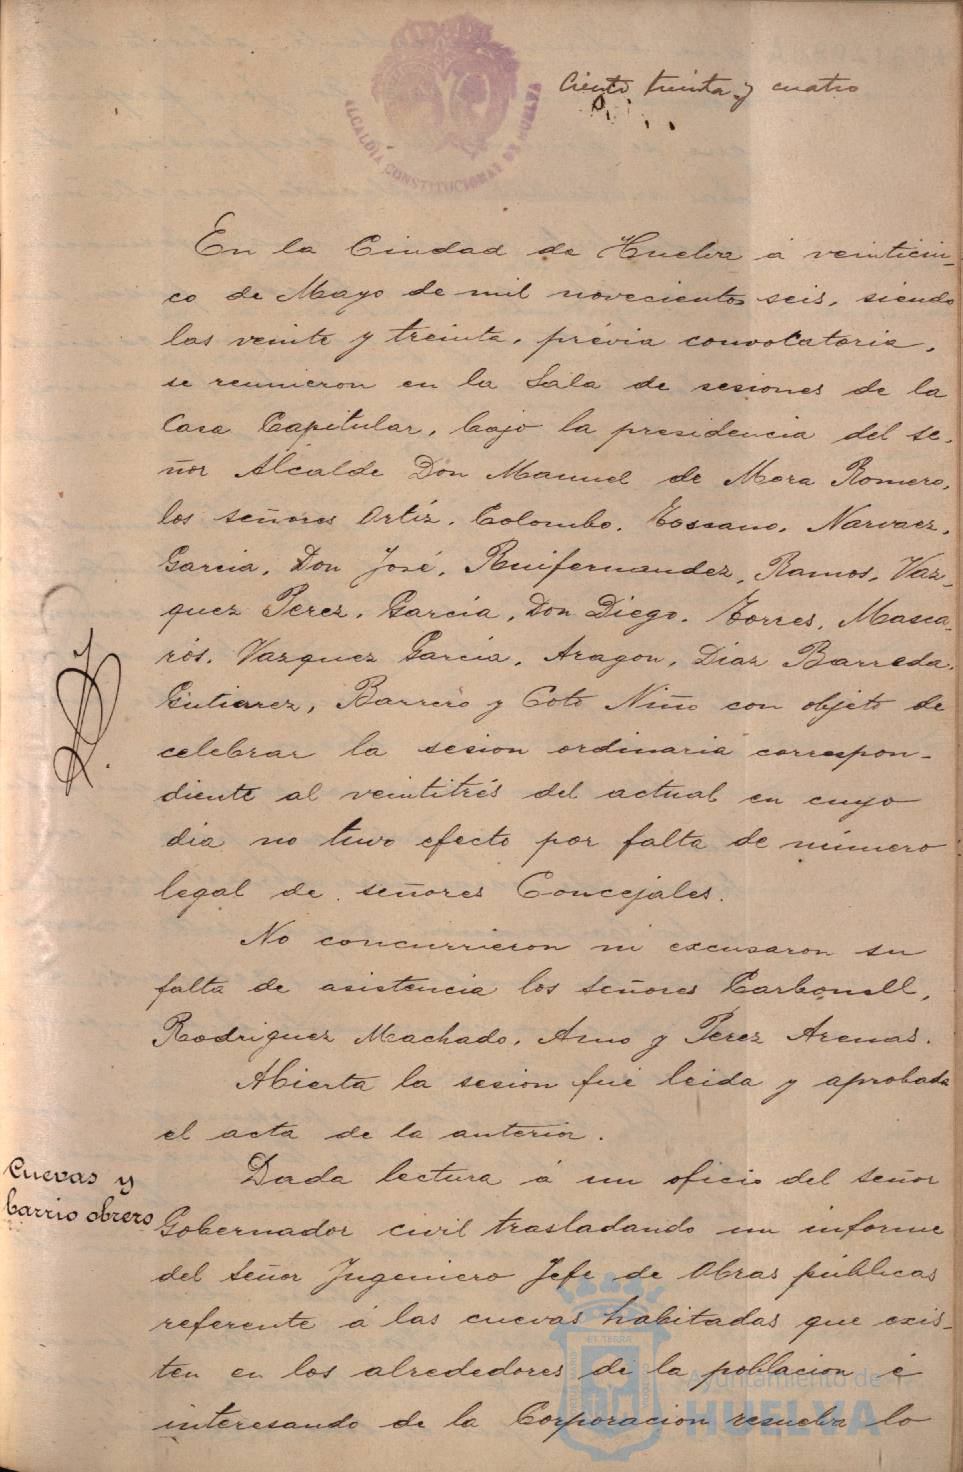 Ciento treinta y cuatro
ALCALDIA CONSTITUCIONAL DE HUELVA
En la Ciudad de Huelva á veinticin-
co de Mayo de mil novecientos seis, siendo
las veinte y treinta, prévia convocatoria,
se reunieron en la Sala de sesiones de la
Casa Capitular, bajo la presidencia del se-
ñor Alcalde Don Manuel de Mora Romero,
los señores Ortiz, Colombo, Toscano, Narvaez,
Garcia, Don José, Ruifernandez, Ramos, Vaz-
quez Perez, Garcia, Don Diego, Torres, Masca-
rós, Vazquez Garcia, Aragon, Diaz Barreda,
Gutierrez, Barrero y Coto Niño con objeto de
celebrar la sesion ordinaria correspon-
diente al veintitrés del actual en cuyo
dia no tuvo efecto por falta de número
legal de señores Concejales.
No concurrieron ni excusaron su
falta de asistencia los señores Carbonell,
Rodriguez Machado, Amo y Perez Arenas.
Abierta la sesion fué leida y aprobada
el acta de la anterior.
Cuevas y
barrio obrero
Dada lectura á un oficio del señor
Gobernador civil trasladando un informe
del señor Ingeniero Jefe de Obras públicas
referente á las cuevas habitadas que exis-
ten en los alrededores de la poblacion é
interesando de la Corporacion resuelva lo
Ayuntamiento de
HUELVA